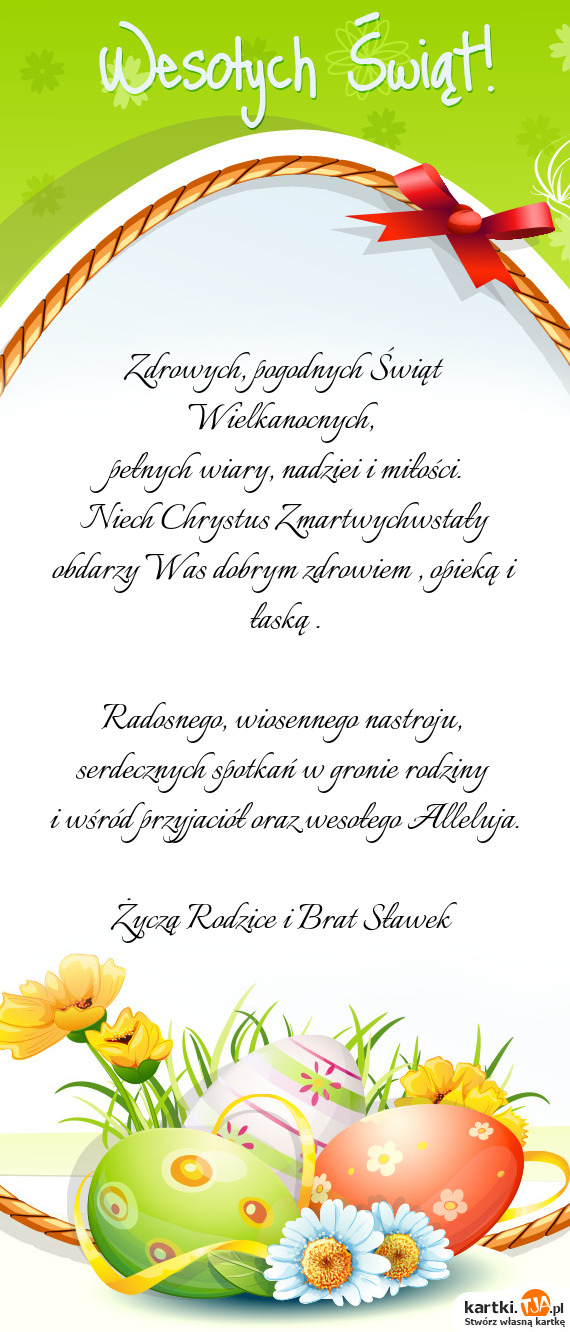 Wesołych Świąt!
Zdrowych, pogodnych Świąt
Wielkanocnych,
pełnych wiary, nadziei i miłości.
Niech Chrystus Zmartwychwstały
obdarzy Was dobrym zdrowiem , opieką i
łaską .
Radosnego, wiosennego nastroju,
serdecznych spotkań w gronie rodziny
i wśród przyjaciół oraz wesołego Alleluja.
Życzą Rodzice i Brat Sławek
kartki.TJA.pl
Stwórz własną kartkę